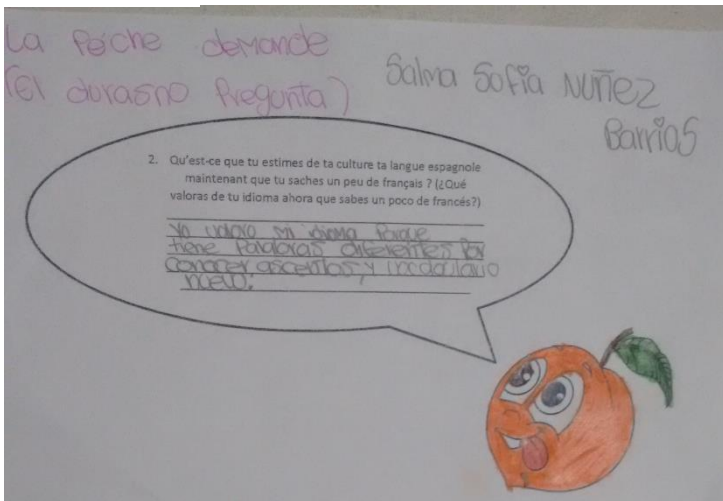 La Peiche demande
(El durasno Pregunta)
Salma Sofía Nuñez
Barrios
2. Qu'est-ce que tu estimes de ta culture ta langue espagnole
maintenant que tu saches un peu de français ? (¿Qué
valoras de tu idioma ahora que sabes un poco de francés?)
Yo valoro mi idioma Porque
tiene Palabras diferentes Por
conocer ascentos y vocabulario
nuevo.